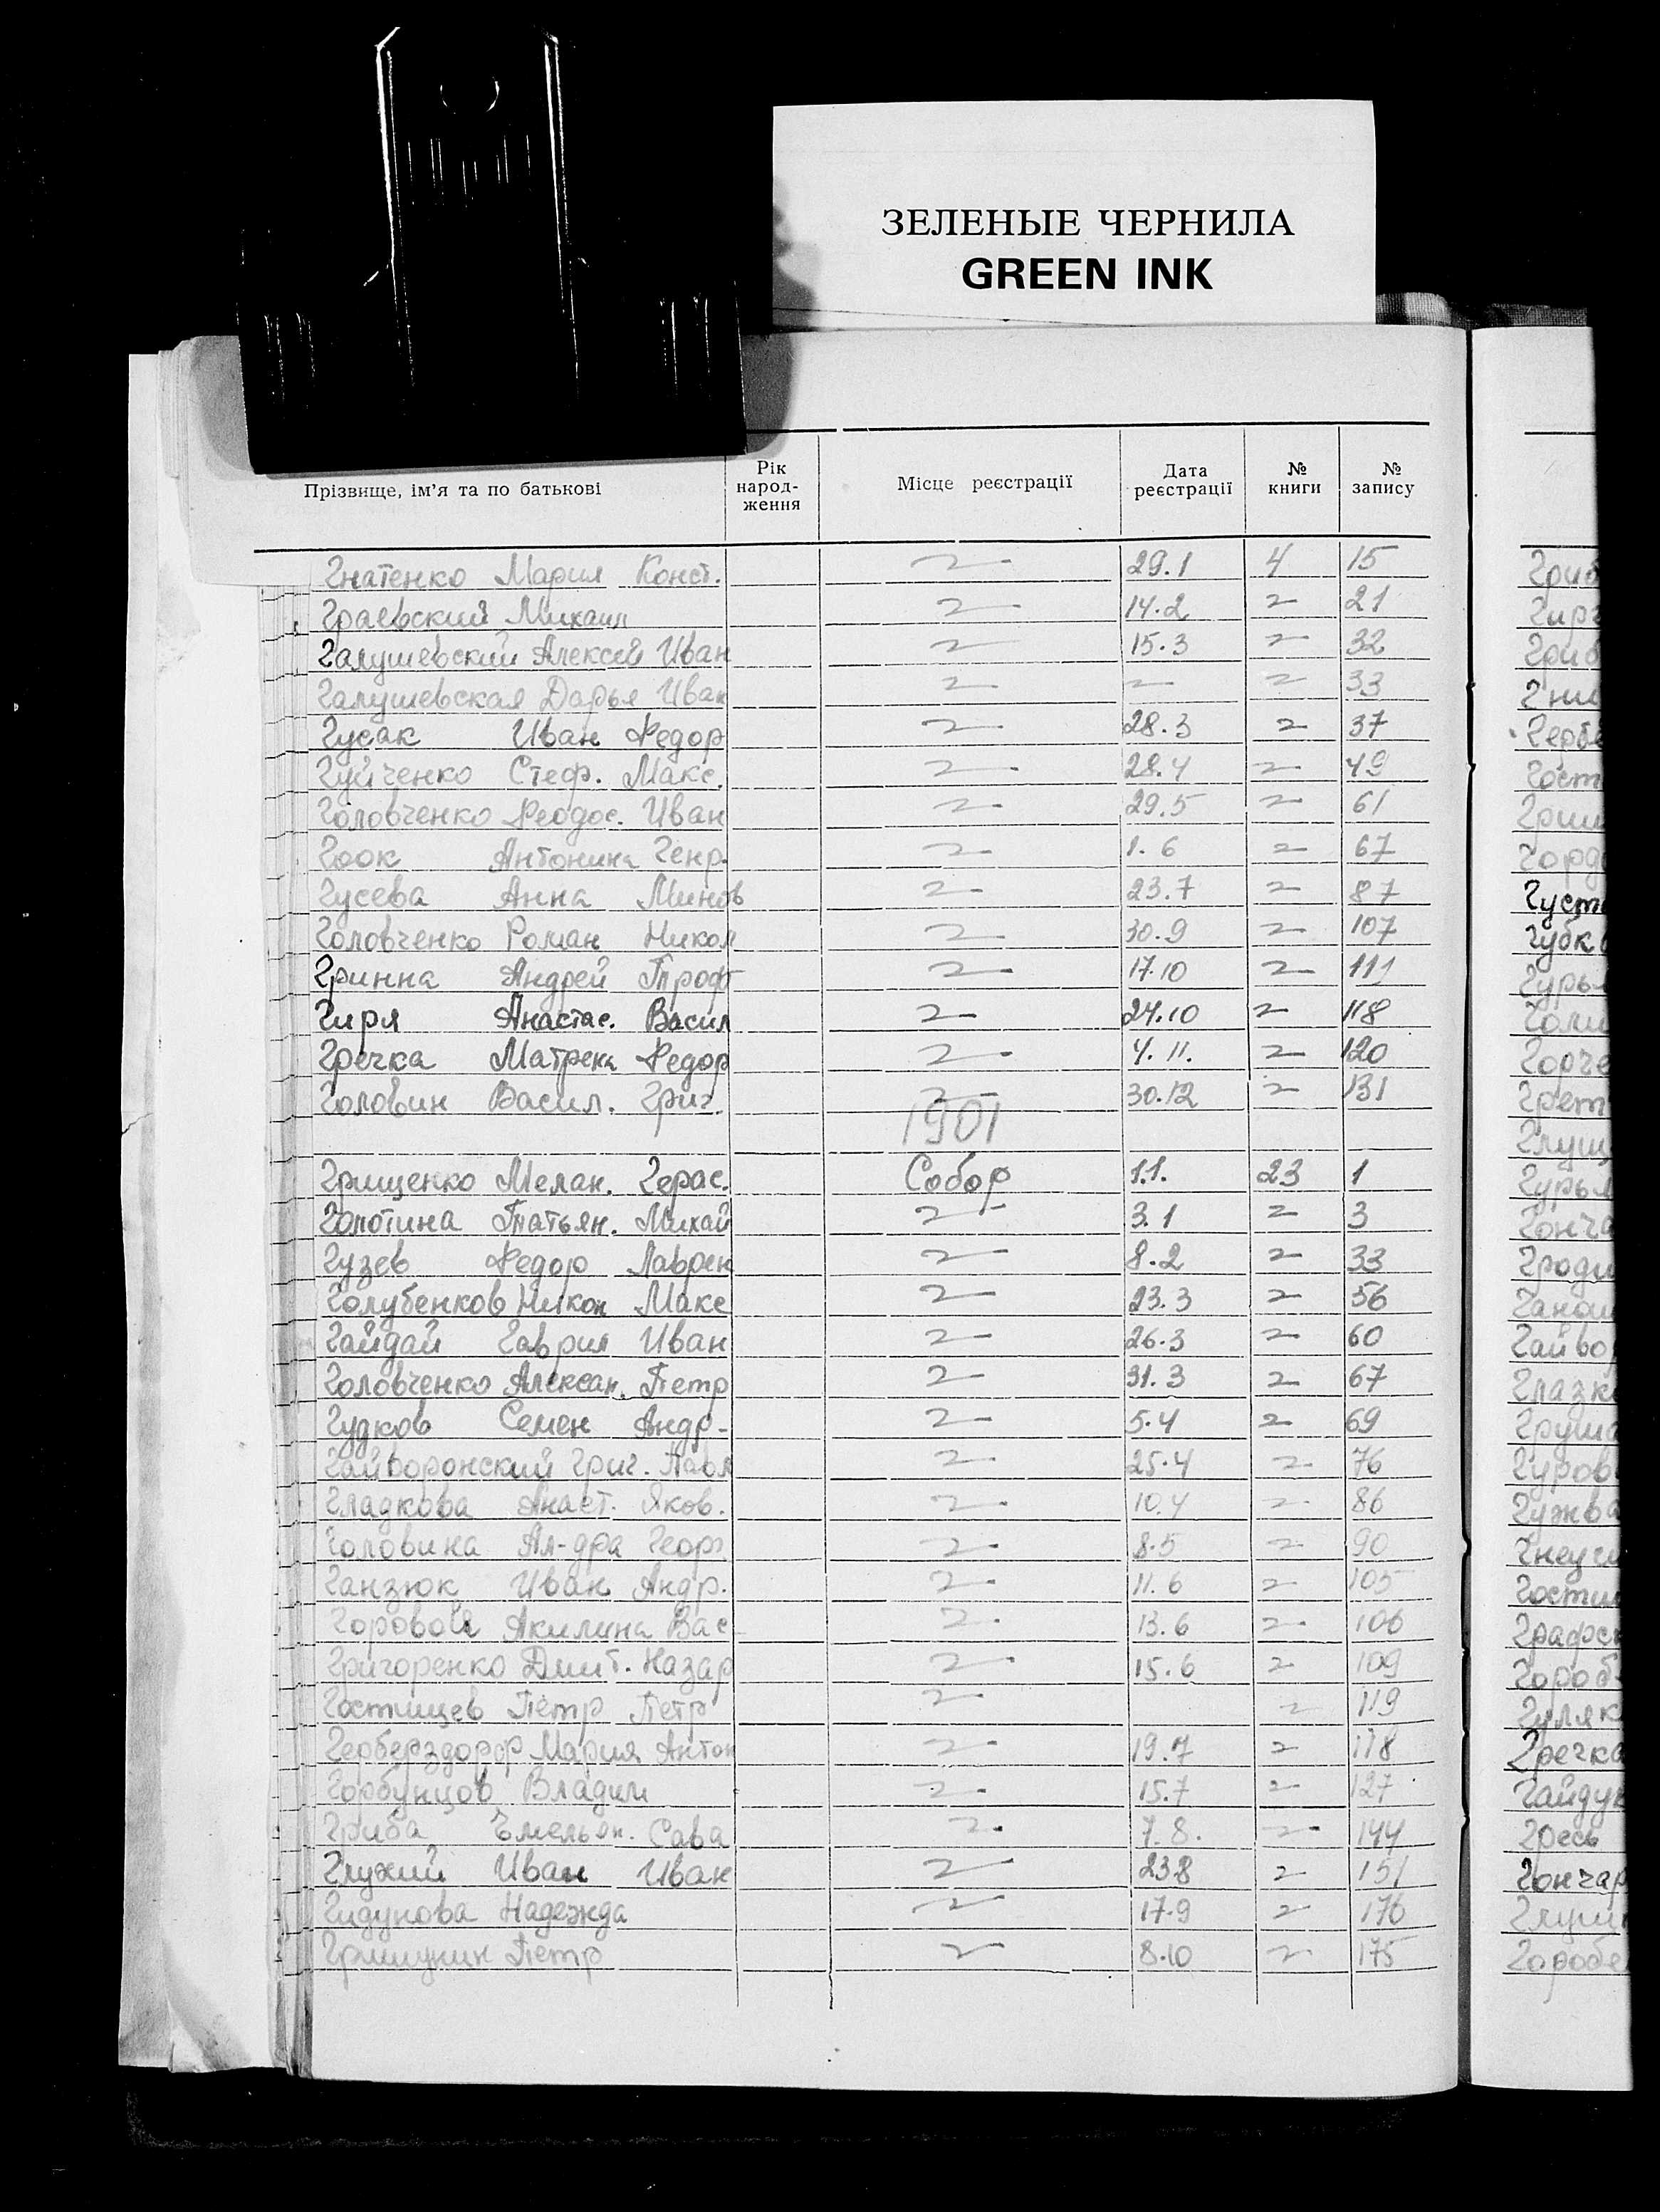 ЗЕЛЕНЫЕ ЧЕРНИЛА
GREEN INK
Прізвище, ім'я та по батькові Рік народ- ження Місце реєстрації Дата реєстрації № книги № запису
Гнатенко Мария Конст. 29.1 4 15
Граевский Михаил 14.2 21
Галушевский Алексей Иван 15.3 32
Галушевская Дарья Иван 33
Гусак Иван Федор 28.3 37
Гуйченко Стеф. Макс. 28.4 49
Головченко Феодос. Иван 29.5 61
Гоок Антонина Генр. 1.6 67
Гусева Анна Минов 23.7 87
Головченко Роман Никол 30.9 107
Гринна Андрей Троф 17.10 111
Гиря Анастас. Васил 24.10 118
Гречка Матрена Федор 4.11. 120
Головин Васил. Григ. 30.12 131
1901
Грищенко Мелан. Герас. Собор 1.1. 23 1
Голотина Татьян. Михай 3.1 3
Гузев Федор Лаврен 8.2 33
Голубенков Никон Макс 23.3 56
Гайдай Гаврил Иван 26.3 60
Головченко Алексан. Петр 31.3 67
Гудков Семен Андр- 5.4 69
Гайворонский Григ. Павл 25.4 76
Гладкова Анаст. Яков. 10.4 86
Головина Ал-дра Георг. 8.5 90
Ганзюк Иван Андр. 11.6 105
Акилина Вас 13.6 106
Григоренко Дмит. Назар 15.6 109
Гостищев Петр Петр 119
Герберздорф Мария Антон 19.7 118
Горбунцов Владим 15.7 127
Гриба Емельян. Сава 7.8. 144
Глухий Иван Иван 23.8 151
Гидунова Надежда 17.9 176
Гришунин Петр 8.10 175